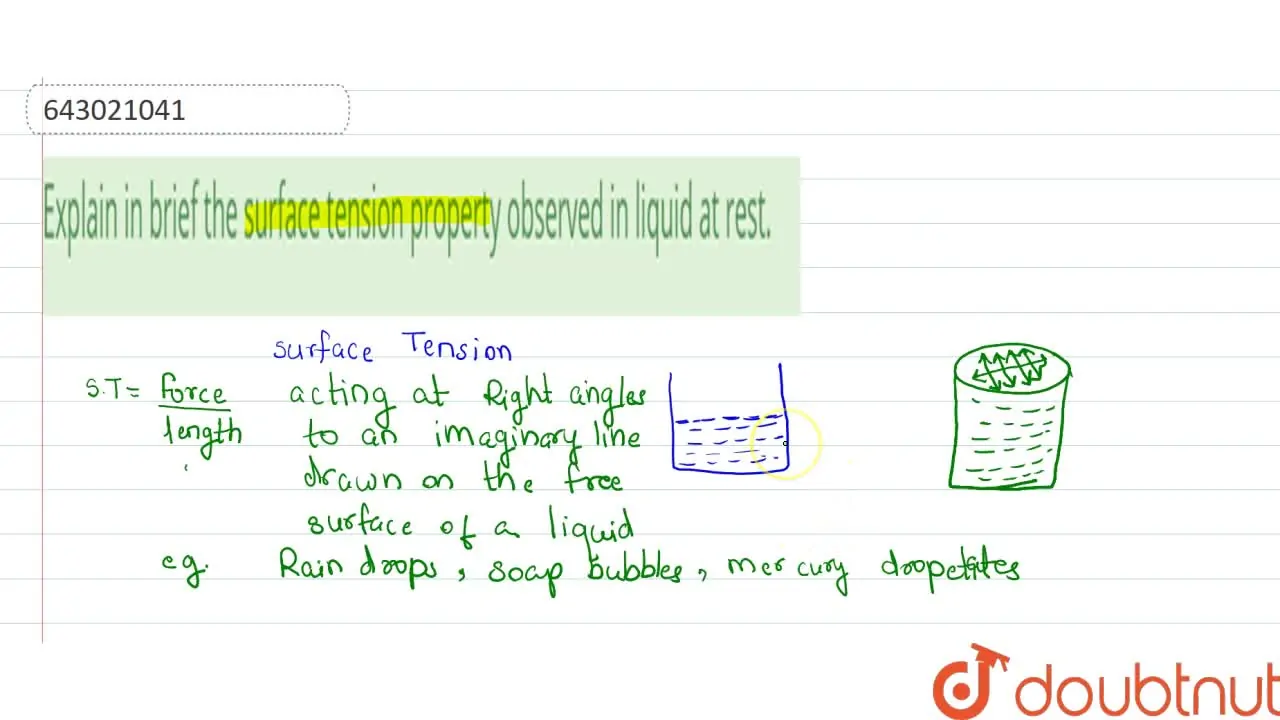 643021041
Explain in brief the surface tension property observed in liquid at rest.
Surface Tension
S.T = force / length acting at Right angles
to an imaginary line
drawn on the free
surface of a liquid
eg. Rain drops, soap bubbles, mercury
doubtnut